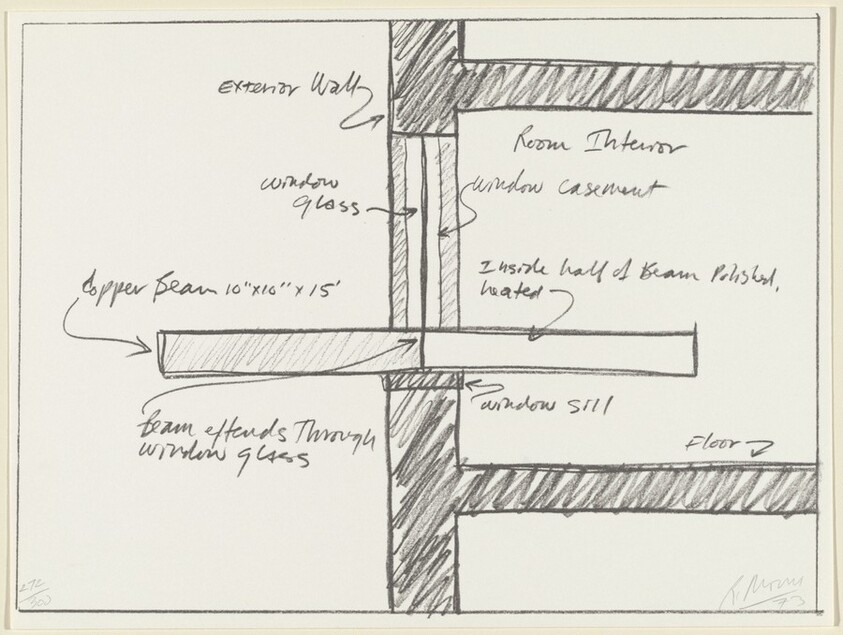 Exterior Wall
Room Interior
window
glass
window casement
Inside half of Beam Polished,
heated
Copper Beam 10"x10" x 15'
window sill
Beam extends Through
window glass
Floor
272/300
R. Morris
73